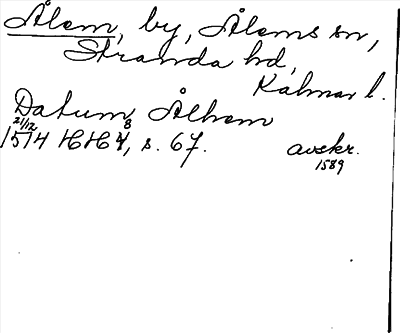 Ålem, by, Ålems sn,
Stranda hd,
Kalmar l.
Datum Ålhem
21/12 1574 HH 8, s. 67. avskr.
1589